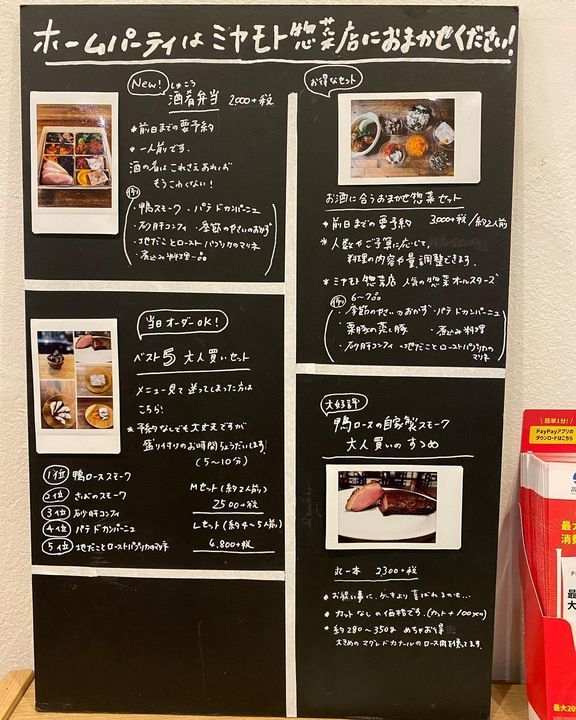 ホームパーティはミヤモト惣菜店におまかせください!
New!
しゅこう
酒肴弁当 2000+税
*前日までの要予約
*一人前です。
酒の肴はこれさえあれば
もうこわくない!
(例)
・鴨スモーク ・パテドカンパーニュ
・砂肝コンフィ ・季節のやさいのおかず
・地だことローストパプリカのマリネ
・煮込み料理一品
お得なセット
お酒に合うおまかせ惣菜セット
*前日までの要予約 3000+税/約2人前
*人数やご予算に応じて
料理の内容や量、調整できます。
*ミヤモト惣菜店 人気の惣菜オールスターズ
6〜7品
(例)
・季節のやさいのおかず ・パテドカンパーニュ
・粟豚の蒸し豚 ・煮込み料理
・砂肝コンフィ ・地だことローストパプリカの
マリネ
当日オーダーOK!
ベスト5 大人買いセット
メニュー見て迷ってしまった方は
こちら!
*予約なしでも大丈夫ですが
盛り付けのお時間ちょうだいします!
(5〜10分)
1位 鴨ローススモーク
2位 さばのスモーク
3位 砂肝コンフィ
4位 パテドカンパーニュ
5位 地だことローストパプリカのマリネ
Mセット(約2人前)
2500+税
Lセット(約4〜5人前)
4,800+税
大好評
鴨ロースの自家製スモーク
大人買いのすすめ
丸一本 2300+税
*お祝い事に、ケーキより喜ばれるかも…
*カットなしの価格です。(カット+100yen)
*約280〜350g めちゃお得
大きめのマグレドカナールのロース肉を使ってます。
簡単1分!
PayPayアプリの
ダウンロードはこちら